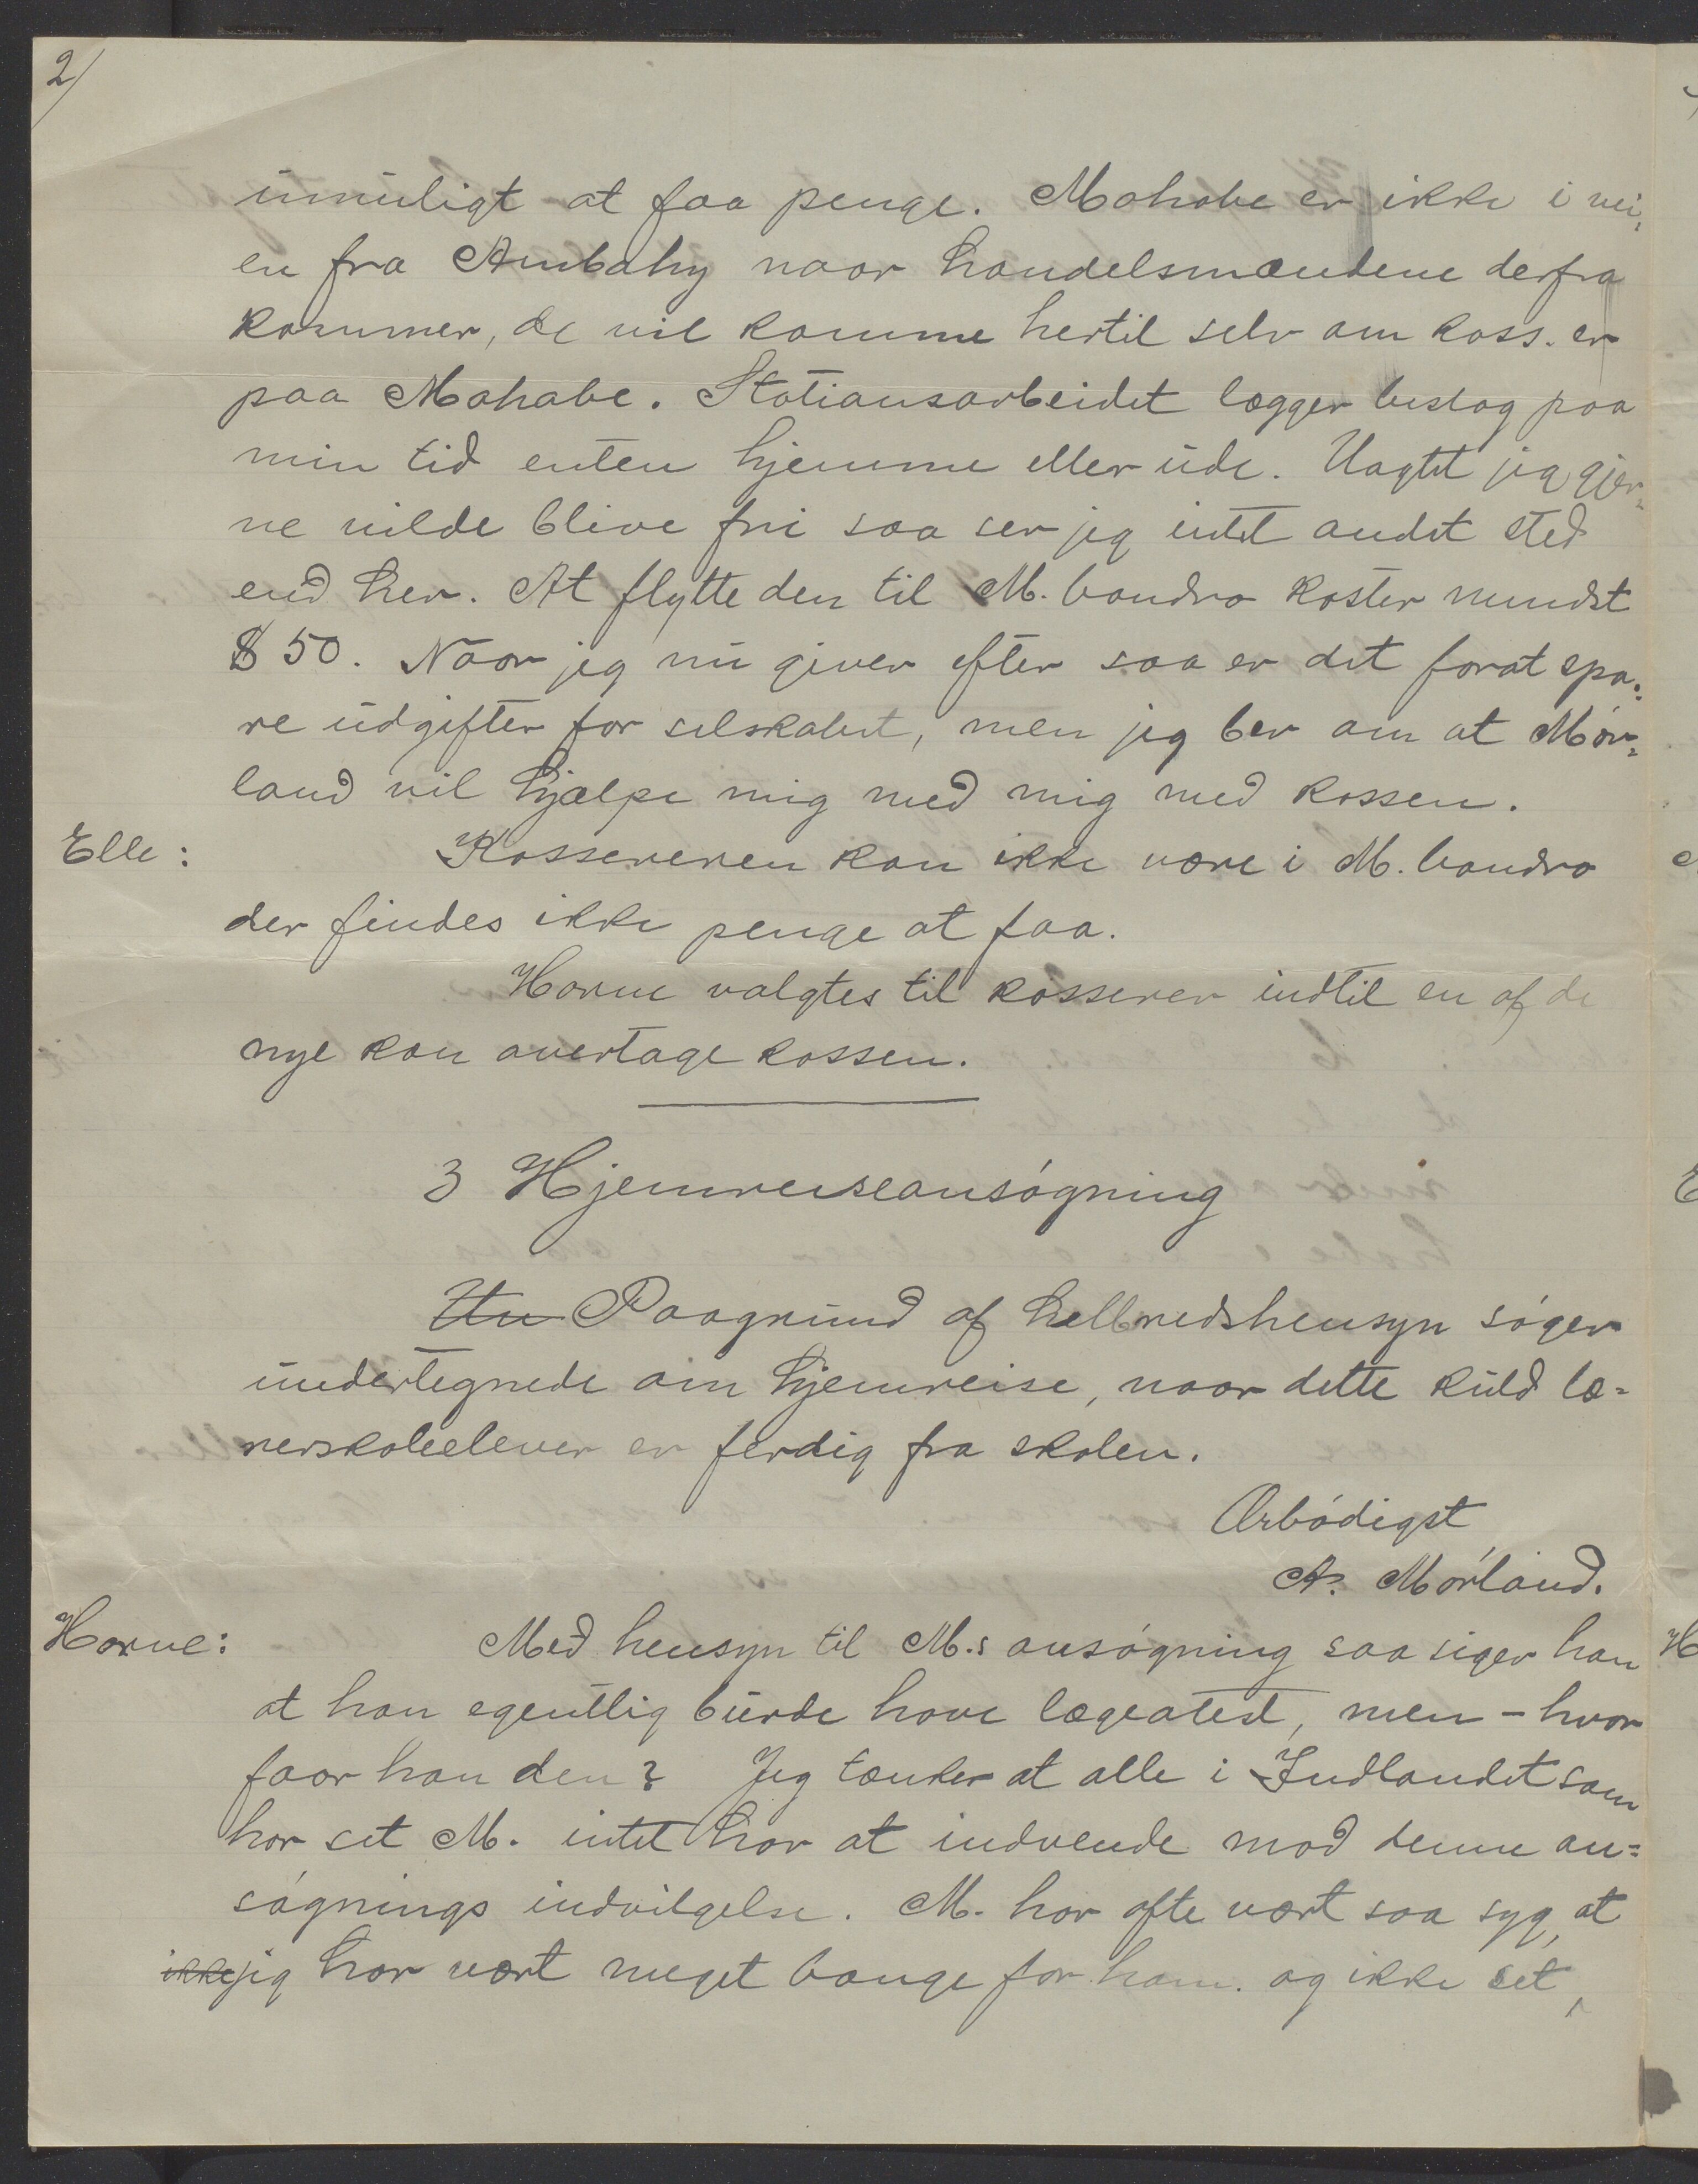 2/
umuligt at faa penge. Mahabe er ikke i vei,
en fra Ambahy naar handelsmændene derfra
kommer, de vil komme hertil selv om kass. er
paa Mahabe. Stationsarbeidet lægger beslag paa
min tid enten hjemme eller ude. Uagtet jeg gjer=
ne vilde blive fri saa ser jeg intet andet sted
end her. At flytte den til M. bandro koster mindst
$ 50. Naar jeg nu giver efter saa er det forat spa=
re udgifter for selskabet, men jeg ber om at Mór=
land vil hjælpe mig med mig med kassen.
Elle: Kassereren kan ikke være i M. bandro
der findes ikke penge at faa.
Horne valgtes til kasserer indtil en af de
nye kan overtage kassen.
3 Hjemreiseansógning
Un Paagrund af helbredshensyn sóger
undertegnede om hjemreise, naar dette kuld læ=
rerskoleelever er ferdig fra skolen.
Ærbódigst
A. Mórland.
Horne: Med hensyn til M.s ansógning saa siger han
at han egentlig burde have lægeatest, men - hvor
faar han den? Jeg tænker at alle i Indlandet som
har set M. intet har at indvende mod denne an=
sógnings indvilgelse. M. har ofte vært saa syg, at
ikke jeg har vært meget bange for ham. og ikke set,